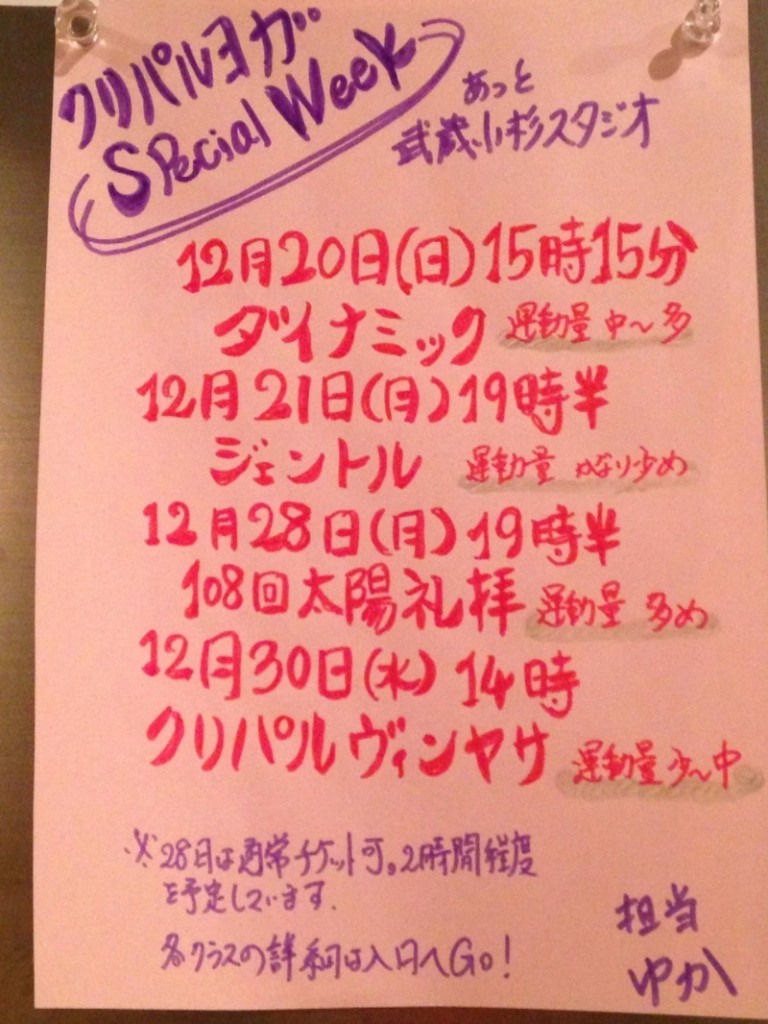 クリパルヨガ
Special Week
あっと
武蔵小杉スタジオ
12月20日(日)15時15分
ダイナミック 運動量 中〜多
12月21日(月)19時半
ジェントル 運動量 かなり少め
12月28日(月)19時半
108回太陽礼拝 運動量 多め
12月30日(水)14時
クリパルヴィンヤサ 運動量少〜中
※28日は通常チケット可。2時間程度
を予定しています.
各クラスの詳細は入口へGo!
担当
ゆか